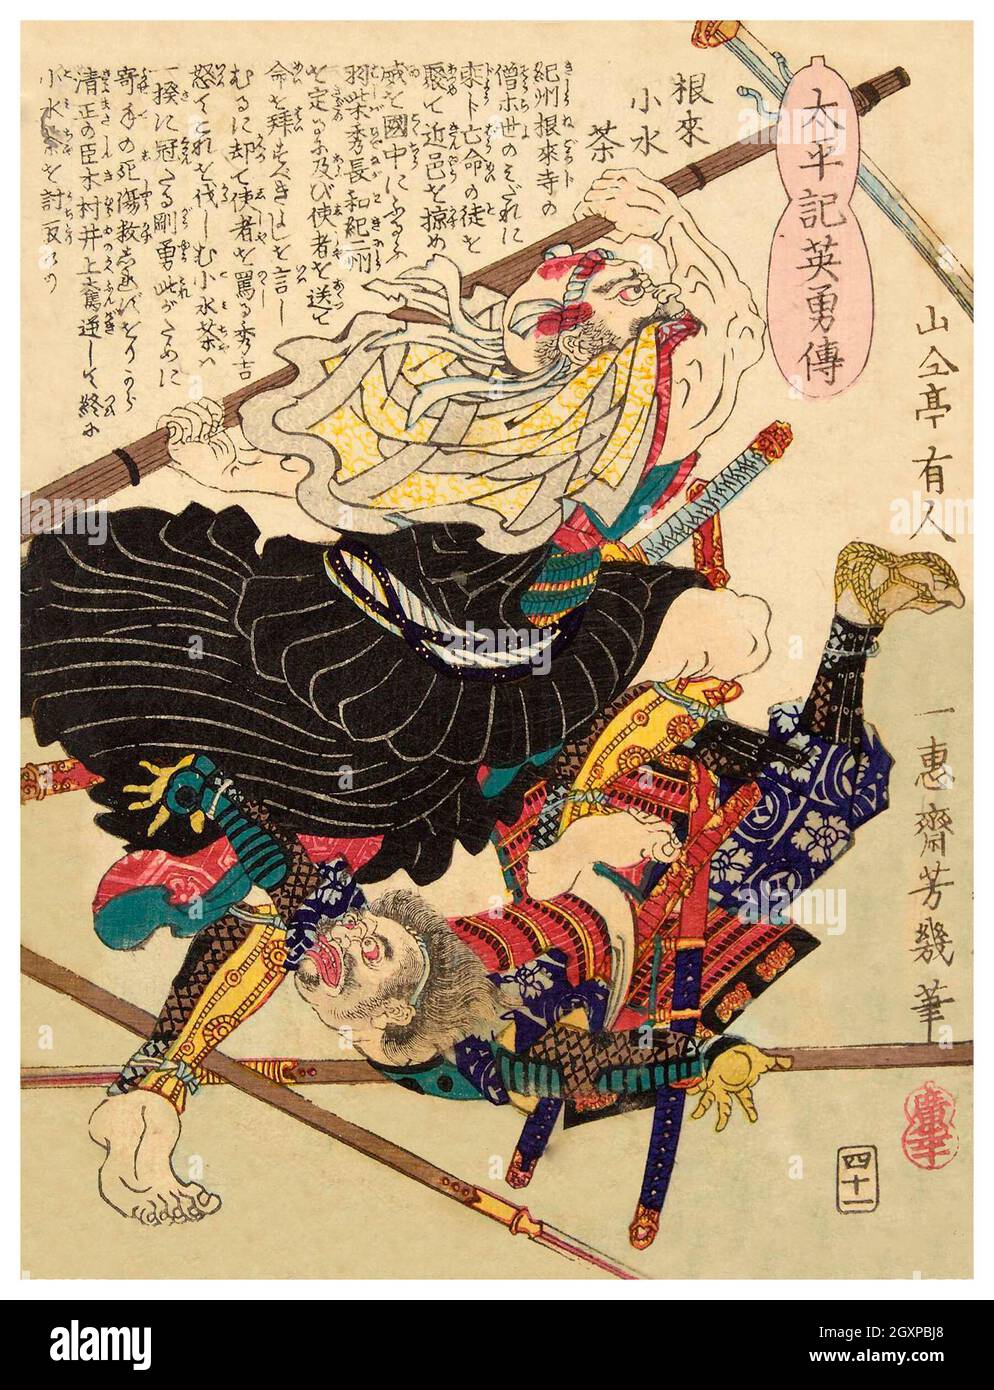 太平記英勇傳
山々亭有人
一惠齋芳幾筆
廣幸
四十一
根來
小水
茶
紀州根來寺の
僧
亡命の徒を
て近邑を掠め
威を國中にふるふ
羽柴秀長和紀二州
を定るに及び使者を送て
命を拜すべきよしを言し
むるに却て使者を罵る秀吉
怒てこれを伐しむ小水茶ハ
一揆に冠たる剛勇此がために
寄手の死傷
清正の臣木村井上奮逆し終に
小水茶を討取けり
alamy
a
Image ID: 2GXPBJ8
www.alamy.com